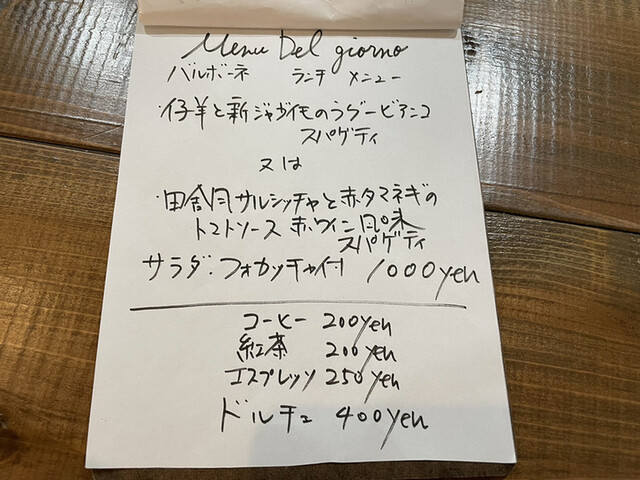 Menu Del giorno
バルボーネ ランチ メニュー
・仔羊と新ジャガイモのラグービアンコ
スパゲティ
又は
・田舎風サルシッチャと赤タマネギの
トマトソース 赤ワイン風味
スパゲティ
サラダ・フォカッチャ付 1000yen
コーヒー 200yen
紅茶 200yen
エスプレッソ 250yen
ドルチェ 400yen